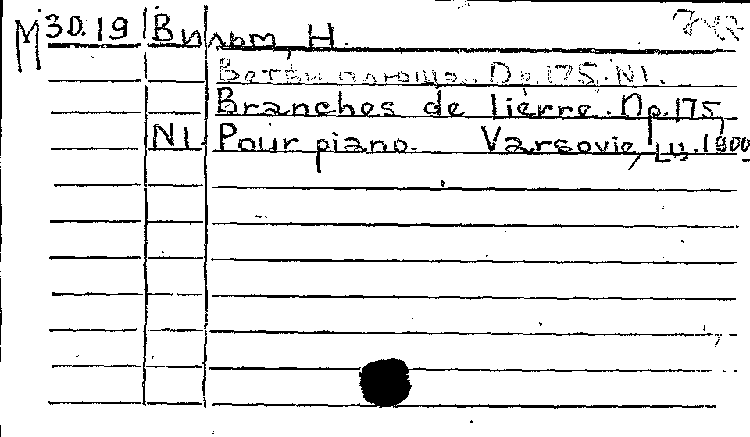 М 30.19 Вильм, Н.
Ветви Op. 175. N1.
Branches de lierre. Op. 175,
N1. Pour piano. Varsovie, 1900